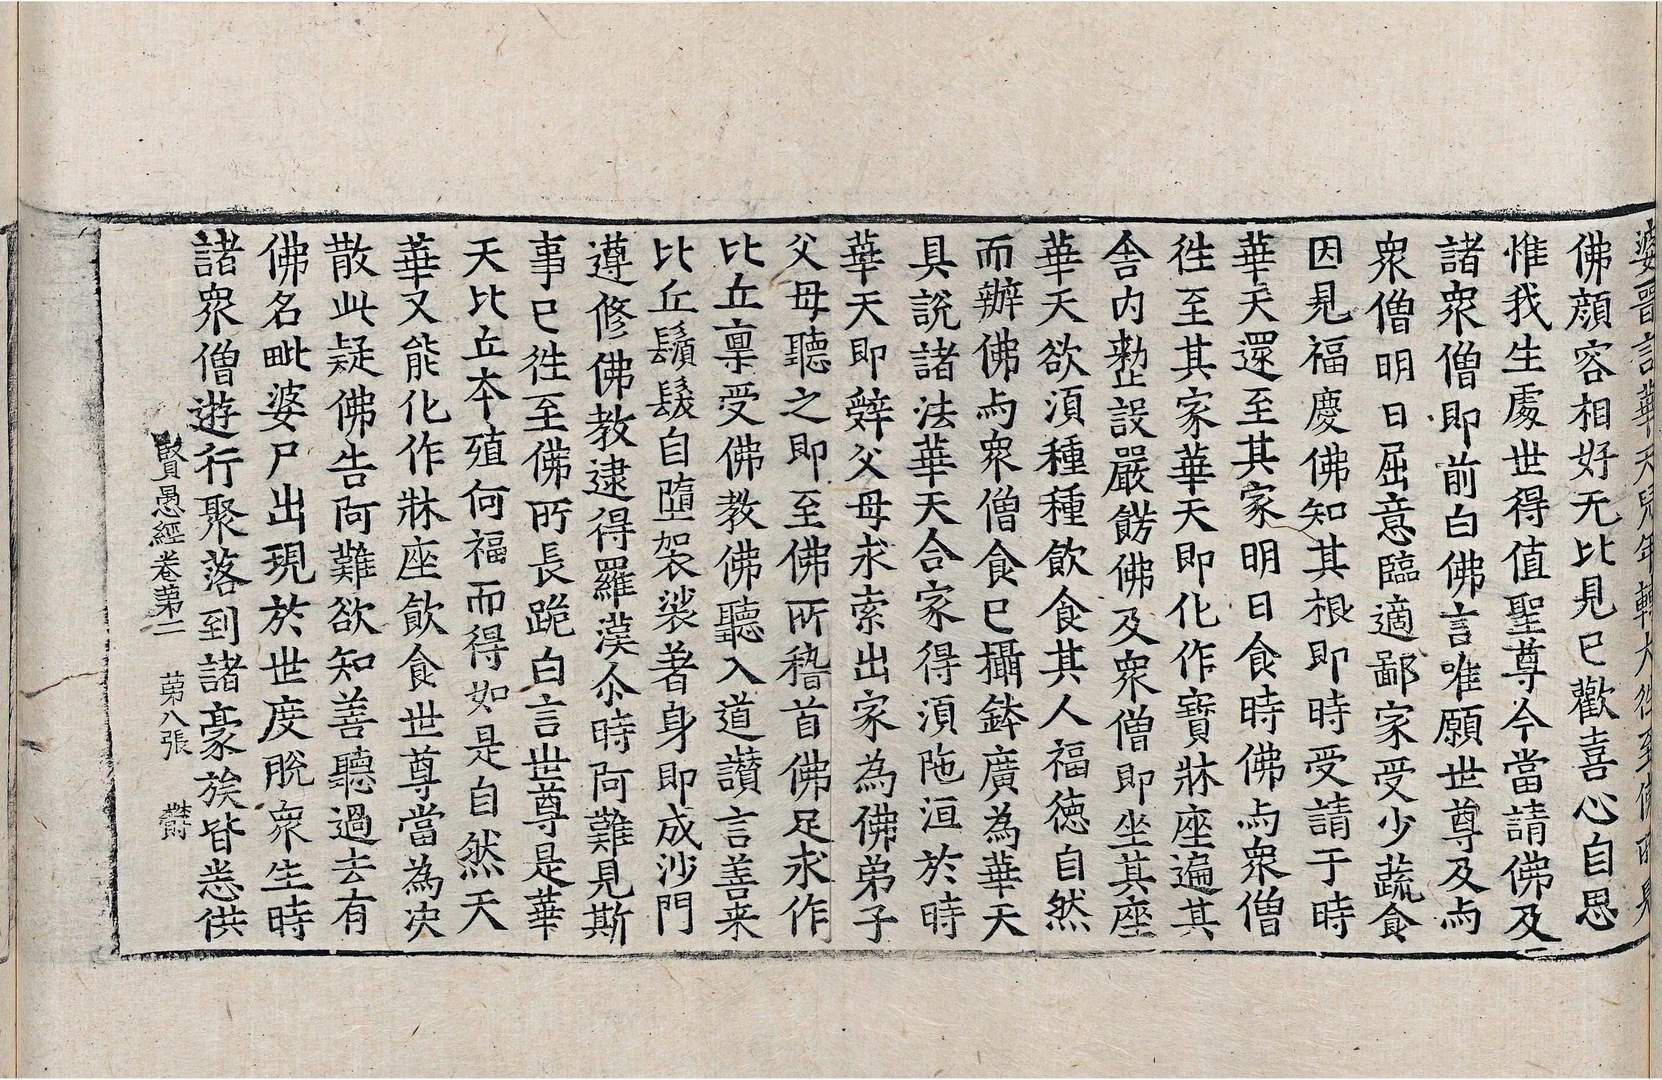 婆晉言華天兒年轉大往至佛所見
佛顔容相好无比見已歡喜心自思
惟我生處世得值聖尊今當請佛及
諸衆僧即前白佛言唯願世尊及与
衆僧明日屈意臨適鄙家受少蔬食
因見福慶佛知其根即時受請于時
華天還至其家明日食時佛与衆僧
徃至其家華天即化作寶牀座遍其
舍内勑設嚴餝佛及衆僧即坐其座
華天欲湏種種飲食其人福德自然
而辦佛与衆僧食已攝鉢廣為華天
具説諸法華天合家得湏陁洹於時
華天即辤父母求索出家為佛弟子
父母聽之即至佛所稽首佛足求作
比丘禀受佛教佛聽入道讃言善来
比丘鬚髮自墮袈裟著身即成沙門
遵修佛教逮得羅漢尒時阿難見斯
事已徃至佛所長跪白言世尊是華
天比丘本殖何福而得如是自然天
華又能化作牀座飲食世尊當為决
散此疑佛告阿難欲知善聽過去有
佛名毗婆尸出現於世度脫衆生時
諸衆僧遊行聚落到諸豪族皆悉供
賢愚經卷苐二　苐八張　欝